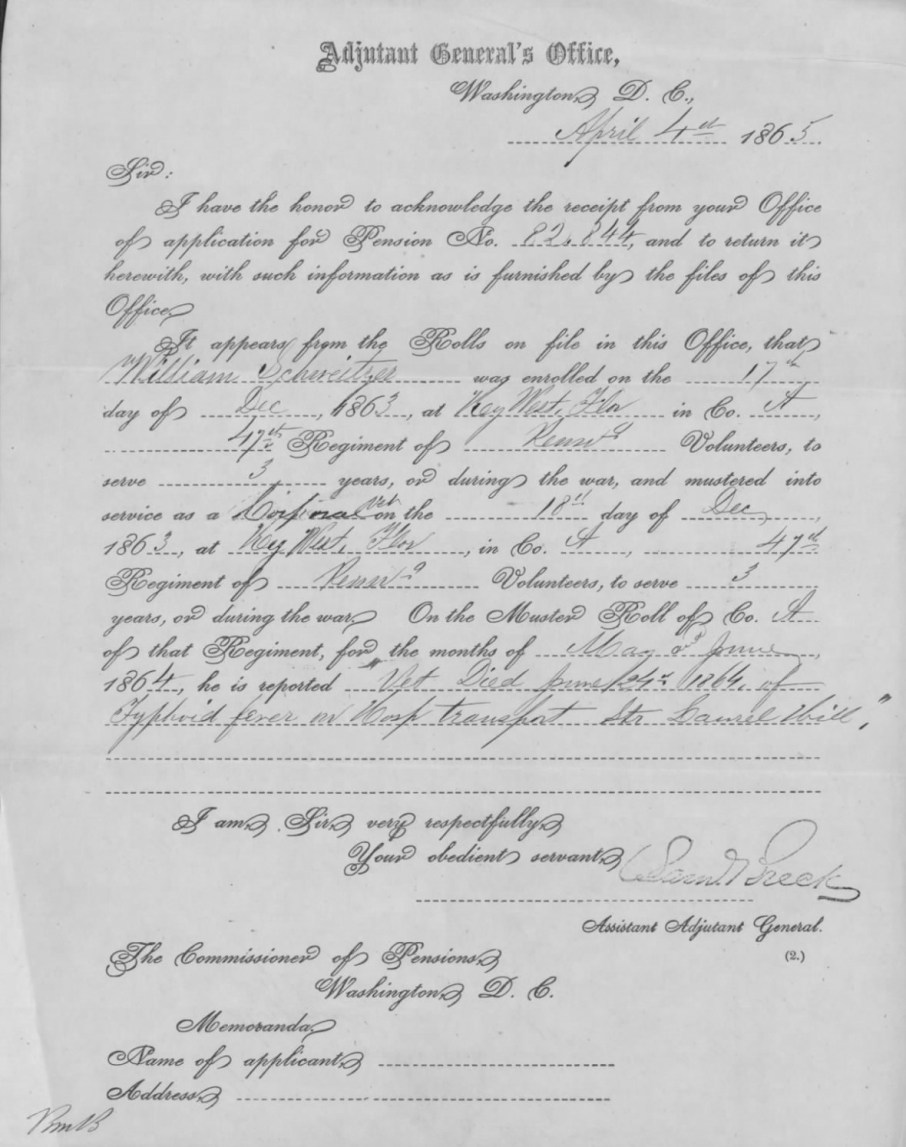 Adjutant General's Office,
Washington, D. C.,
April 4th 1865.
Sir:
I have the honor to acknowledge the receipt from your Office
of application for Pension No. 82,844, and to return it
herewith, with such information as is furnished by the files of this
Office.
It appears from the Rolls on file in this Office, that
William Schweitzer was enrolled on the 17th
day of Dec, 1863, at Key West, Flor in Co. A,
47th Regiment of Pennsa Volunteers, to
serve 3 years, or during the war, and mustered into
service as a Corporal Vet on the 18th day of Dec,
1863, at Key West, Flor, in Co. A, 47th
Regiment of Pennsa Volunteers, to serve 3
years, or during the war. On the Muster Roll of Co. A
of that Regiment, for the months of May & June,
1864, he is reported "Vet Died June 24th 1864, of
Typhoid fever on Hosp transport Str Laurel Hill,"
I am, Sir, very respectfully,
Your obedient servant,
Saml Breck
Assistant Adjutant General.
The Commissioner of Pensions,
(2.)
Washington, D. C.
Memoranda,
Name of applicant,
Address,